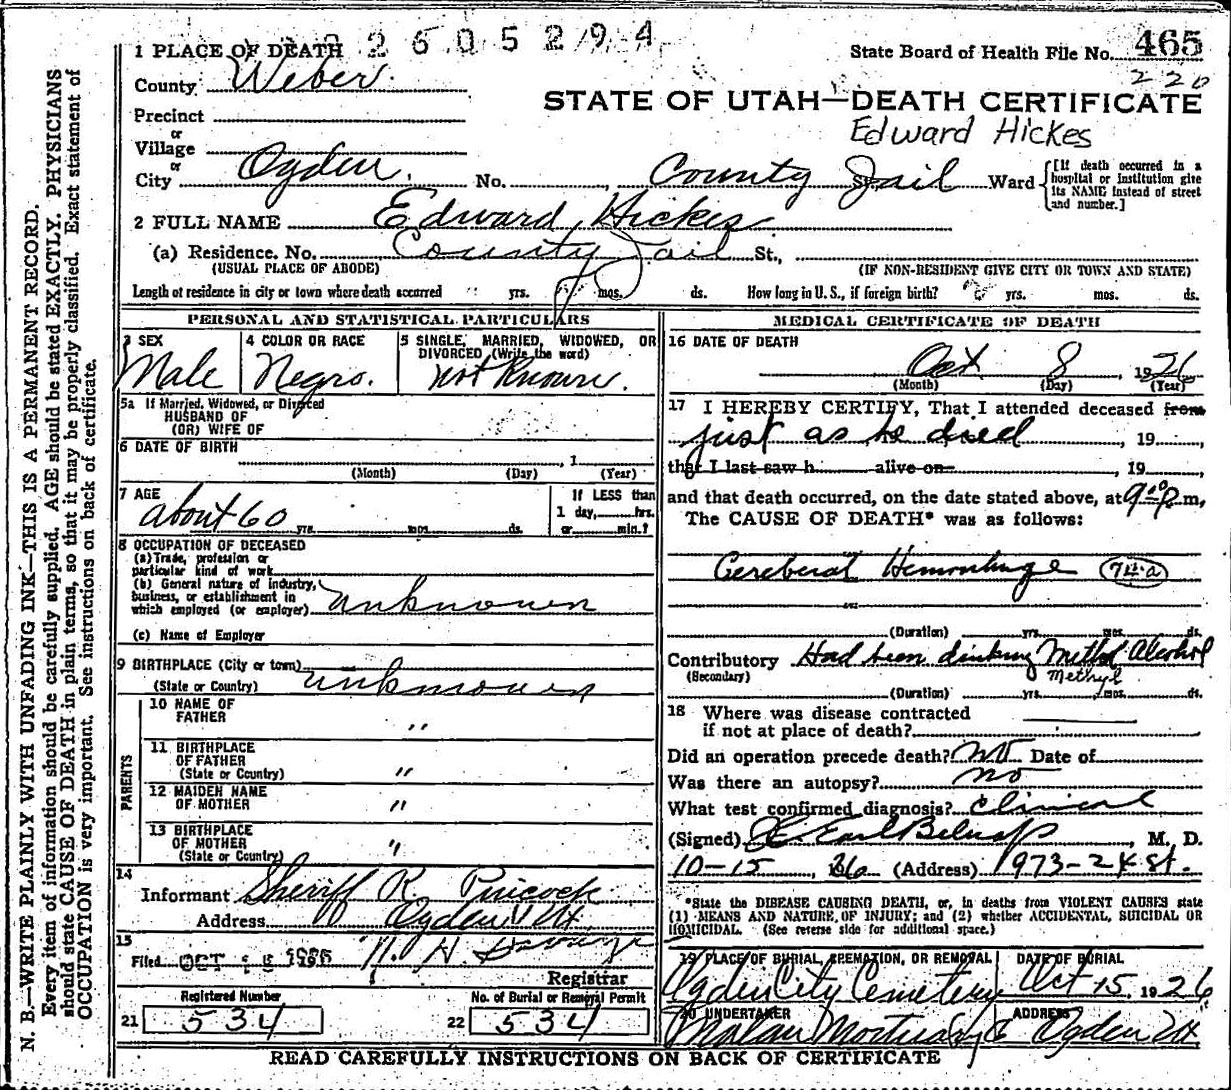 2605294
State Board of Health File No. 465
220
1 PLACE OF DEATH
County Weber
STATE OF UTAH—DEATH CERTIFICATE
Edward Hickes
Precinct
or
Village
or
City Ogden. No. , County Jail Ward
[If death occurred in a hospital or institution give its NAME instead of street and number.]
2 FULL NAME Edward Hickes
(a) Residence. No. County Jail St.,
(USUAL PLACE OF ABODE) (IF NON-RESIDENT GIVE CITY OR TOWN AND STATE)
Length of residence in city or town where death occurred yrs. mos. ds. How long in U. S., if foreign birth? yrs. mos. ds.
PERSONAL AND STATISTICAL PARTICULARS
3 SEX
Male
4 COLOR OR RACE
Negro.
5 SINGLE, MARRIED, WIDOWED, OR
DIVORCED (Write the word)
not Known.
5a If Married, Widowed, or Divorced
HUSBAND OF
(OR) WIFE OF
6 DATE OF BIRTH
, 1
(Month) (Day) (Year)
7 AGE
about 60
yrs. mos. ds.
If LESS than
1 day, hrs.
or min.?
8 OCCUPATION OF DECEASED
(a) Trade, profession or
particular kind of work
(b) General nature of industry,
business, or establishment in
which employed (or employer) unknown
(c) Name of Employer
9 BIRTHPLACE (City or town)
(State or Country) unknown
PARENTS
10 NAME OF
FATHER "
11 BIRTHPLACE
OF FATHER
(State or Country) "
12 MAIDEN NAME
OF MOTHER "
13 BIRTHPLACE
OF MOTHER
(State or Country) "
14
Informant Sheriff R. Pincock
Address Ogden Ut.
15
Filed OCT
Registrar
Registered Number
21 534
No. of Burial or Removal Permit
22 534
MEDICAL CERTIFICATE OF DEATH
16 DATE OF DEATH
Oct 8, 1926
(Month) (Day) (Year)
17 I HEREBY CERTIFY, That I attended deceased from
just as he died , 19 ,
that I last saw h alive on , 19 ,
and that death occurred, on the date stated above, at 9 10 P m.
The CAUSE OF DEATH* was as follows:
Cerebral Hemorrhage 74-a
(Duration) yrs. mos. ds.
Contributory Had been drinking Methol Alcohol
(Secondary) Methyl
(Duration) yrs. mos. ds.
18 Where was disease contracted
if not at place of death?
Did an operation precede death? NO Date of
Was there an autopsy? no
What test confirmed diagnosis? Clinical
(Signed) Earl Belnap M. D.
10-15, 26 (Address) 1973-24 St.
*State the DISEASE CAUSING DEATH, or, in deaths from VIOLENT CAUSES state
(1) MEANS AND NATURE OF INJURY; and (2) whether ACCIDENTAL, SUICIDAL OR
HOMICIDAL. (See reverse side for additional space.)
19 PLACE OF BURIAL, CREMATION, OR REMOVAL
Ogden City Cemetery
DATE OF BURIAL
Oct 15, 1926
20 UNDERTAKER
Malan Mortuary
ADDRESS
Ogden Ut
READ CAREFULLY INSTRUCTIONS ON BACK OF CERTIFICATE
N. B.—WRITE PLAINLY WITH UNFADING INK—THIS IS A PERMANENT RECORD.
Every item of information should be carefully supplied. AGE should be stated EXACTLY. PHYSICIANS
should state CAUSE OF DEATH in plain terms, so that it may be properly classified. Exact statement of
OCCUPATION is very important. See instructions on back of certificate.